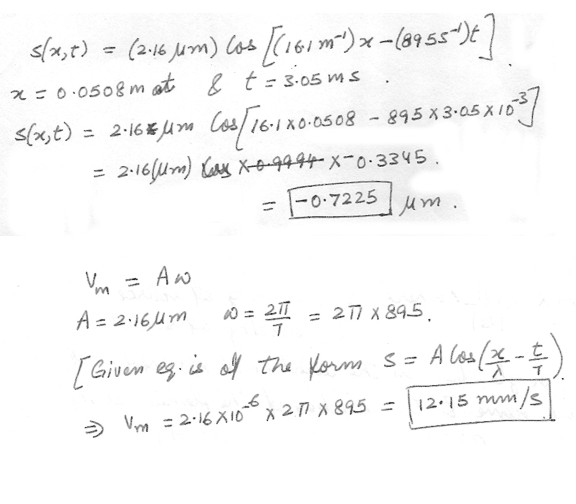 s(x,t) = (2.16 μm) Cos [(16.1 m⁻¹) x - (895 s⁻¹)t].
x = 0.0508 m at & t = 3.05 ms.
s(x,t) = 2.16 μm Cos[16.1 x 0.0508 - 895 x 3.05 x 10⁻³]
= 2.16(μm) Cos x 0.9994 x -0.3345.
= -0.7225 μm.
Vm = Aω
A = 2.16 μm ω = 2π/T = 2π x 895.
[Given eq. is of the form S = A Cos(x/λ - t/T)
⇒ Vm = 2.16 x 10⁻⁶ x 2π x 895 = 12.15 mm/s